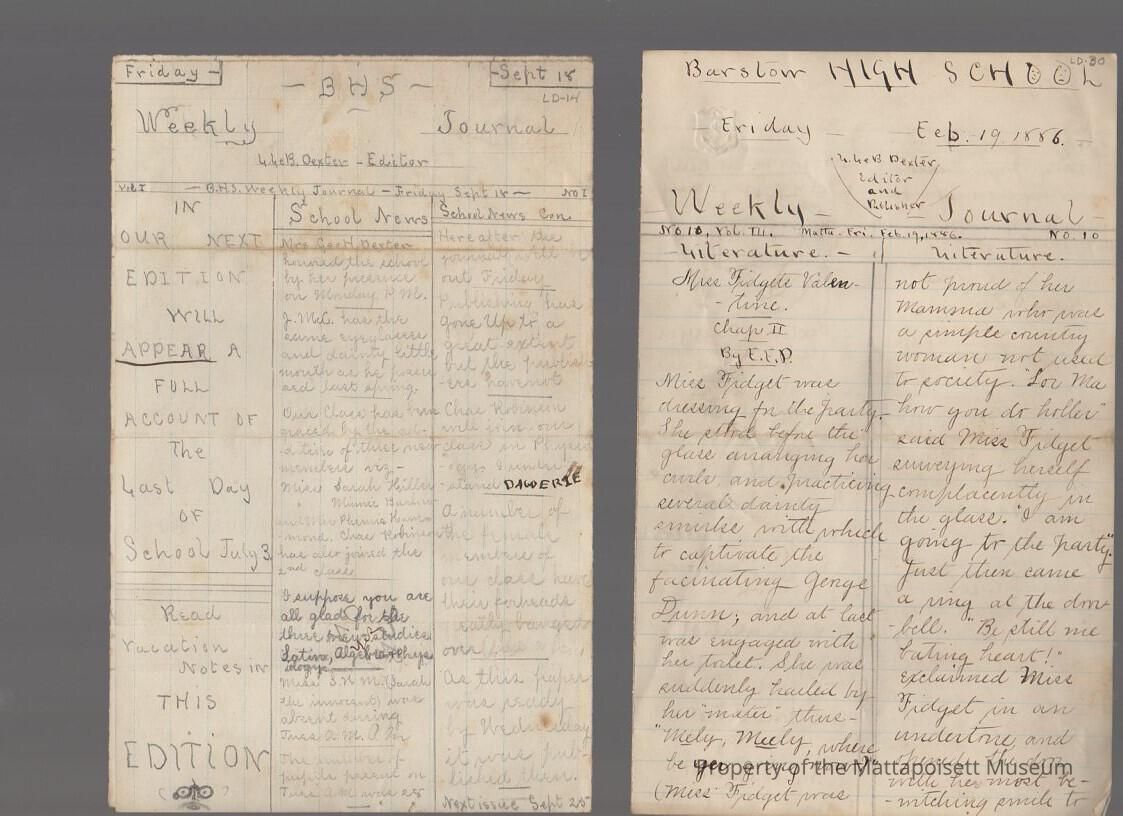 Friday -
- BHS -
- Sept 18
LD-14
Weekly
Journal
B. Dexter - Editor
Vol I - B.H.S. Weekly Journal - Friday Sept 18 - No I
IN
OUR NEXT
EDITION
WILL
APPEAR A
FULL
ACCOUNT OF
The
Last Day
OF
School July 3.
Read
Vacation
Notes in
THIS
EDITION
School News
Mrs Geo H. Dexter
honored the school
by her presence
on Monday P.M.
J. McC. has the
same eyeglasses
and dainty little
mouth as he
last spring.
Our Class has been
graced by the
of three new
members viz,-
Miss Sarah Hiller
Minnie
and Miss Phennie Ham-
mond. Chas Robinson
has also joined the
2nd class.
I suppose you are
all glad for the
three new studies
Latin, Algebra & Phys-
iology.
Miss S.N.M. (Sarah
the innocent) was
absent during
Tues A.M. P.M.
The number of
pupils present on
Tues A.M. was 28
School News Con.
Hereafter the
journal will
out Friday
Publishing has
gone Up to a
great extent
but the
have not
Chas Robinson
will join our
class in
DAWERIE
A number of
the female
members of
our class have
their forheads
banged
over
As this paper
was ready
by Wednesday
it was pub-
lished then.
Next issue Sept 25
LD-80
Barstow HIGH SCHOOL
- Friday - Feb. 19. 1886.
B. Dexter,
Editor
and
Publisher
Weekly - Journal -
No 10, Vol. III. Matta. Fri. Feb. 19, 1886. No. 10
- Literature. -
Miss Fidgete Valen-
- tine.
Chap II
By E.E.P.
Miss Fidget was
dressing for the party.
She stood before the
glass arranging her
curls, and practicing
several dainty
smirks with which
to captivate the
facinating George
Dunn; and at last
was engaged with
her toilet. She was
suddenly hailed by
her "mater" thus-
"Mely, Meely, where
be yer going now?"
(Miss Fidget was
Literature.
not proud of her
Mamma who was
a simple country
woman not used
to society. "Lor Ma
how you do holler"
said Miss Fidget
surveying herself
complacently in
the glass. "I am
going to the party."
Just then came
a ring at the door
-bell. "Be still me
bating heart!"
exclaimed Miss
Fidget in an
undertone, and
with her most be-
-witching smile to
Property of the Mattapoisett Museum